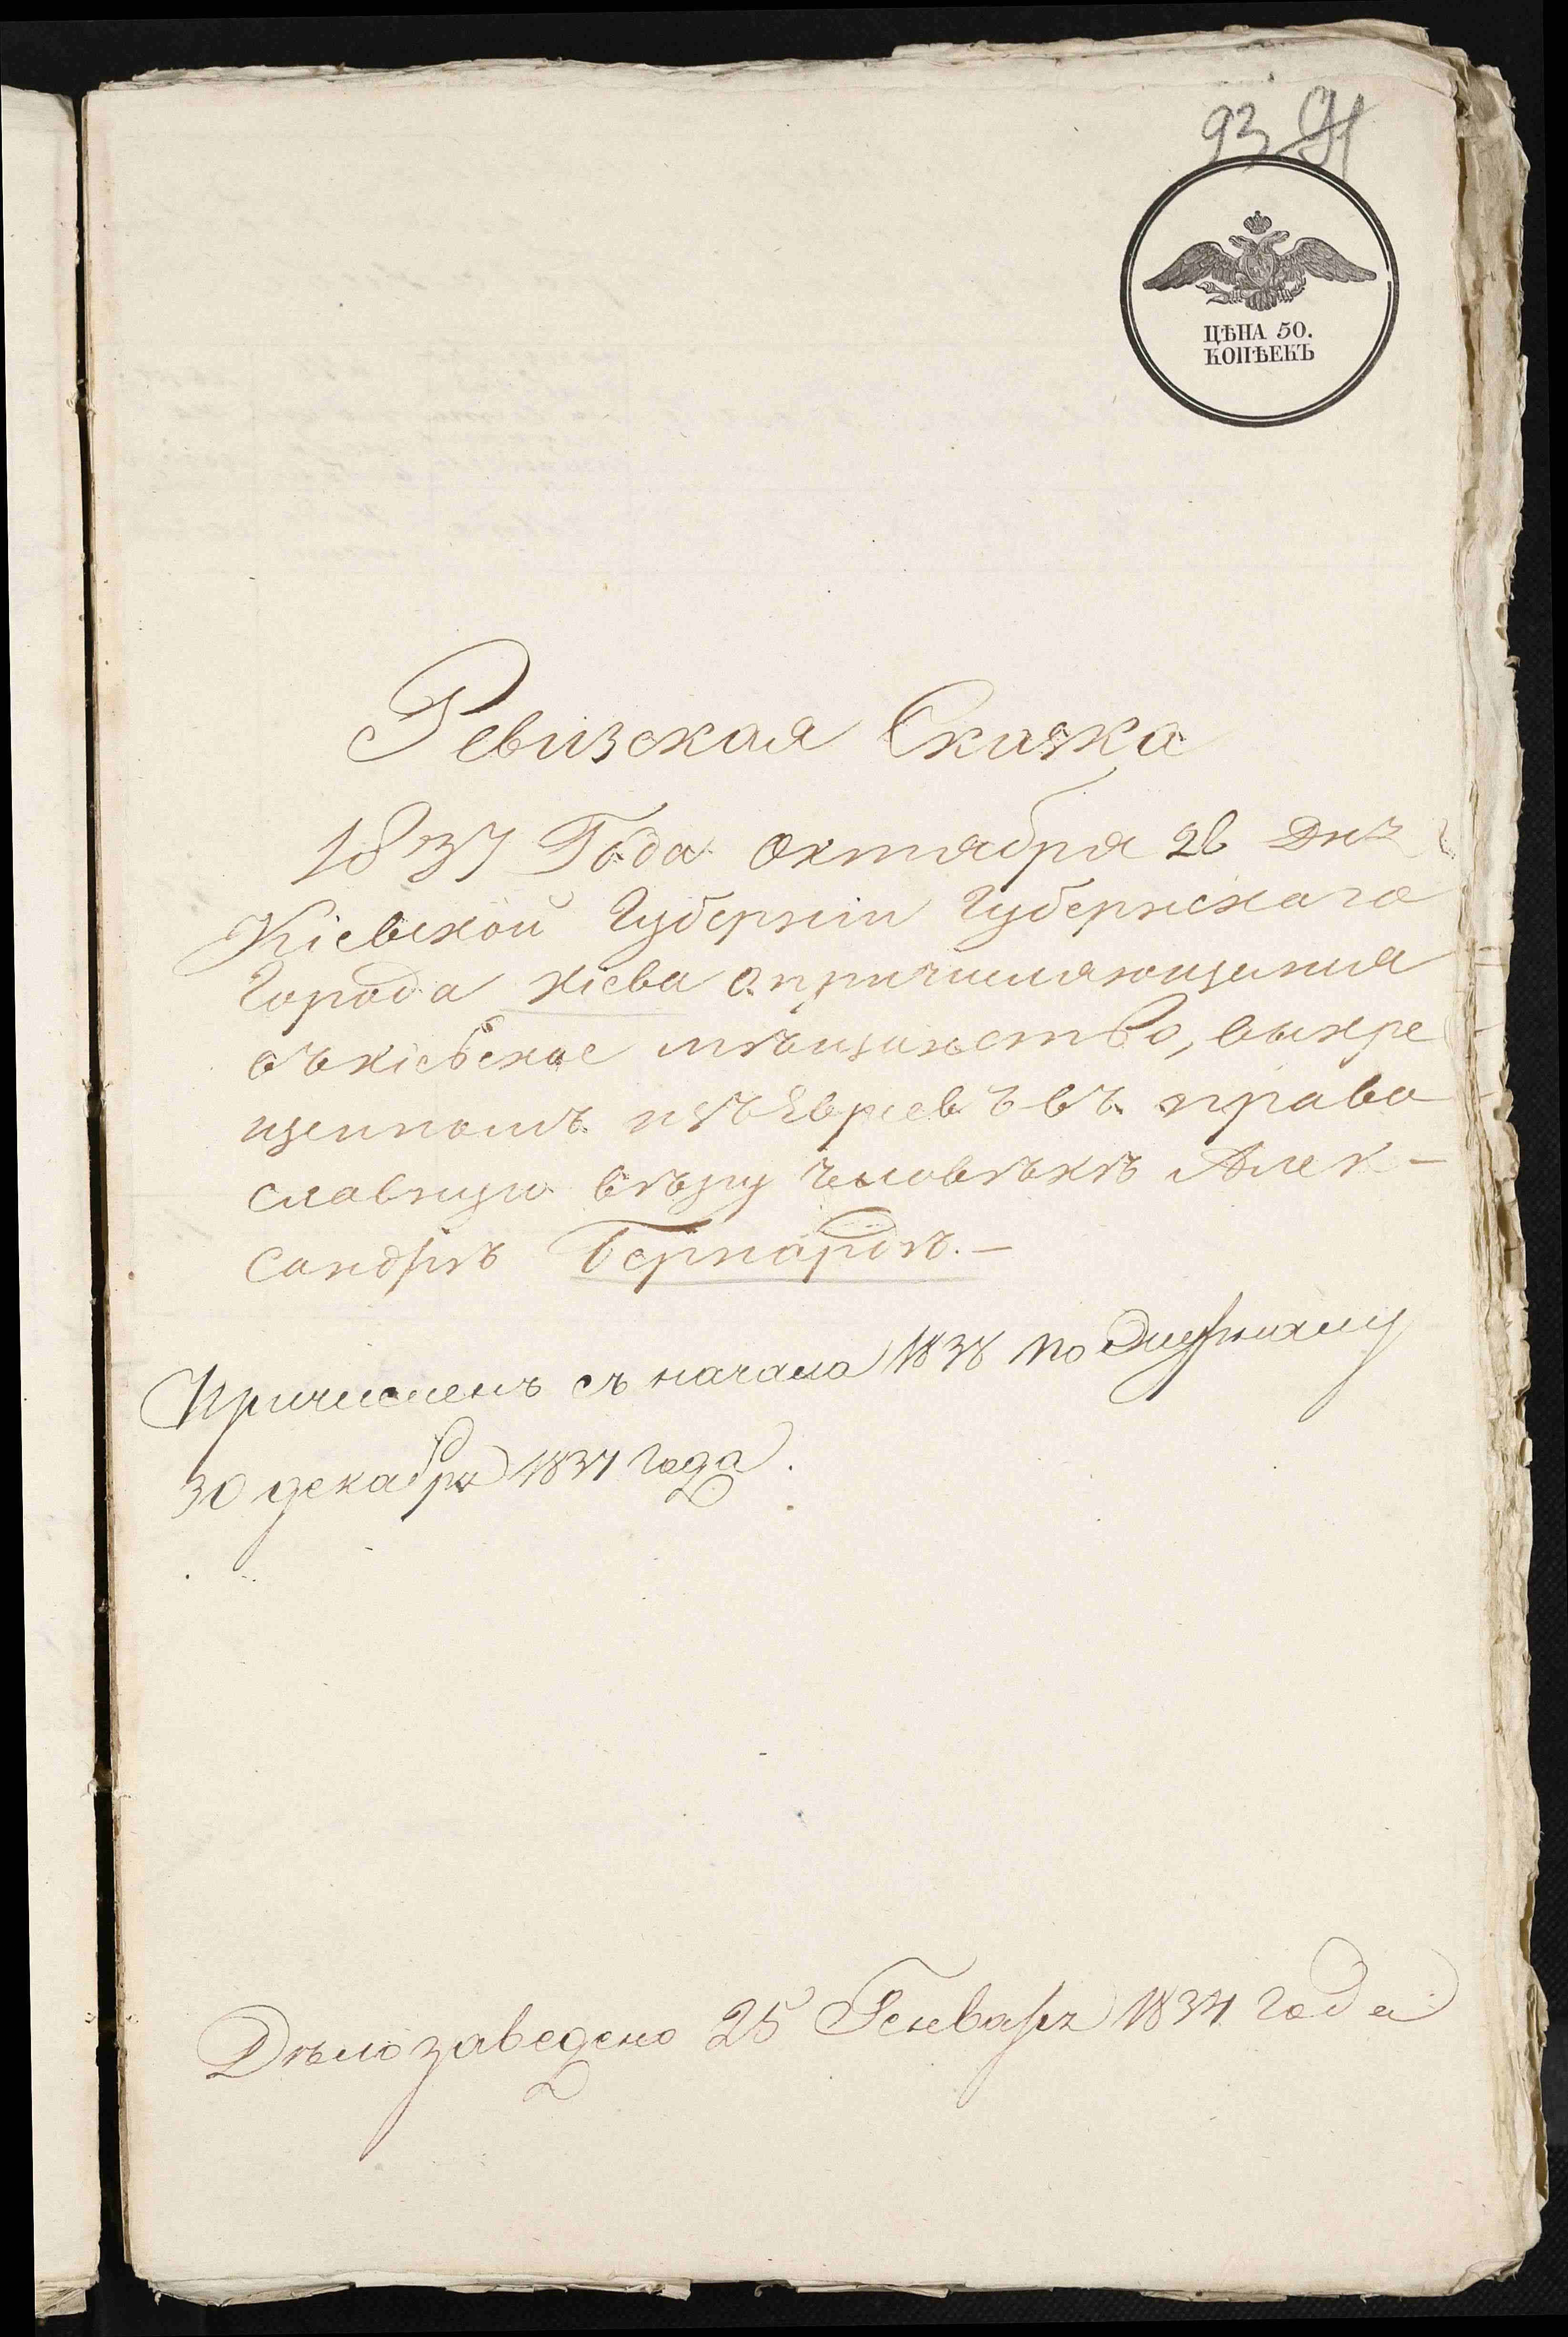 93 91
ЦѢНА 50.
КОПѢЕКЪ
Ревизская Сказка
1837 Года октября 26 дня
Кіевской Губерніи Губернскаго
Города Кіева о причисляющимся
въ кіевское мѣщанство, выкре
щенномъ изъ Евреевъ въ право
славную вѣру человѣкѣ Алек-
сандрѣ Бернардѣ.-
Причисленъ съ начала 1838 по
30 декабря 1837 года.
Дѣло заведено 25 Генваря 1834 года